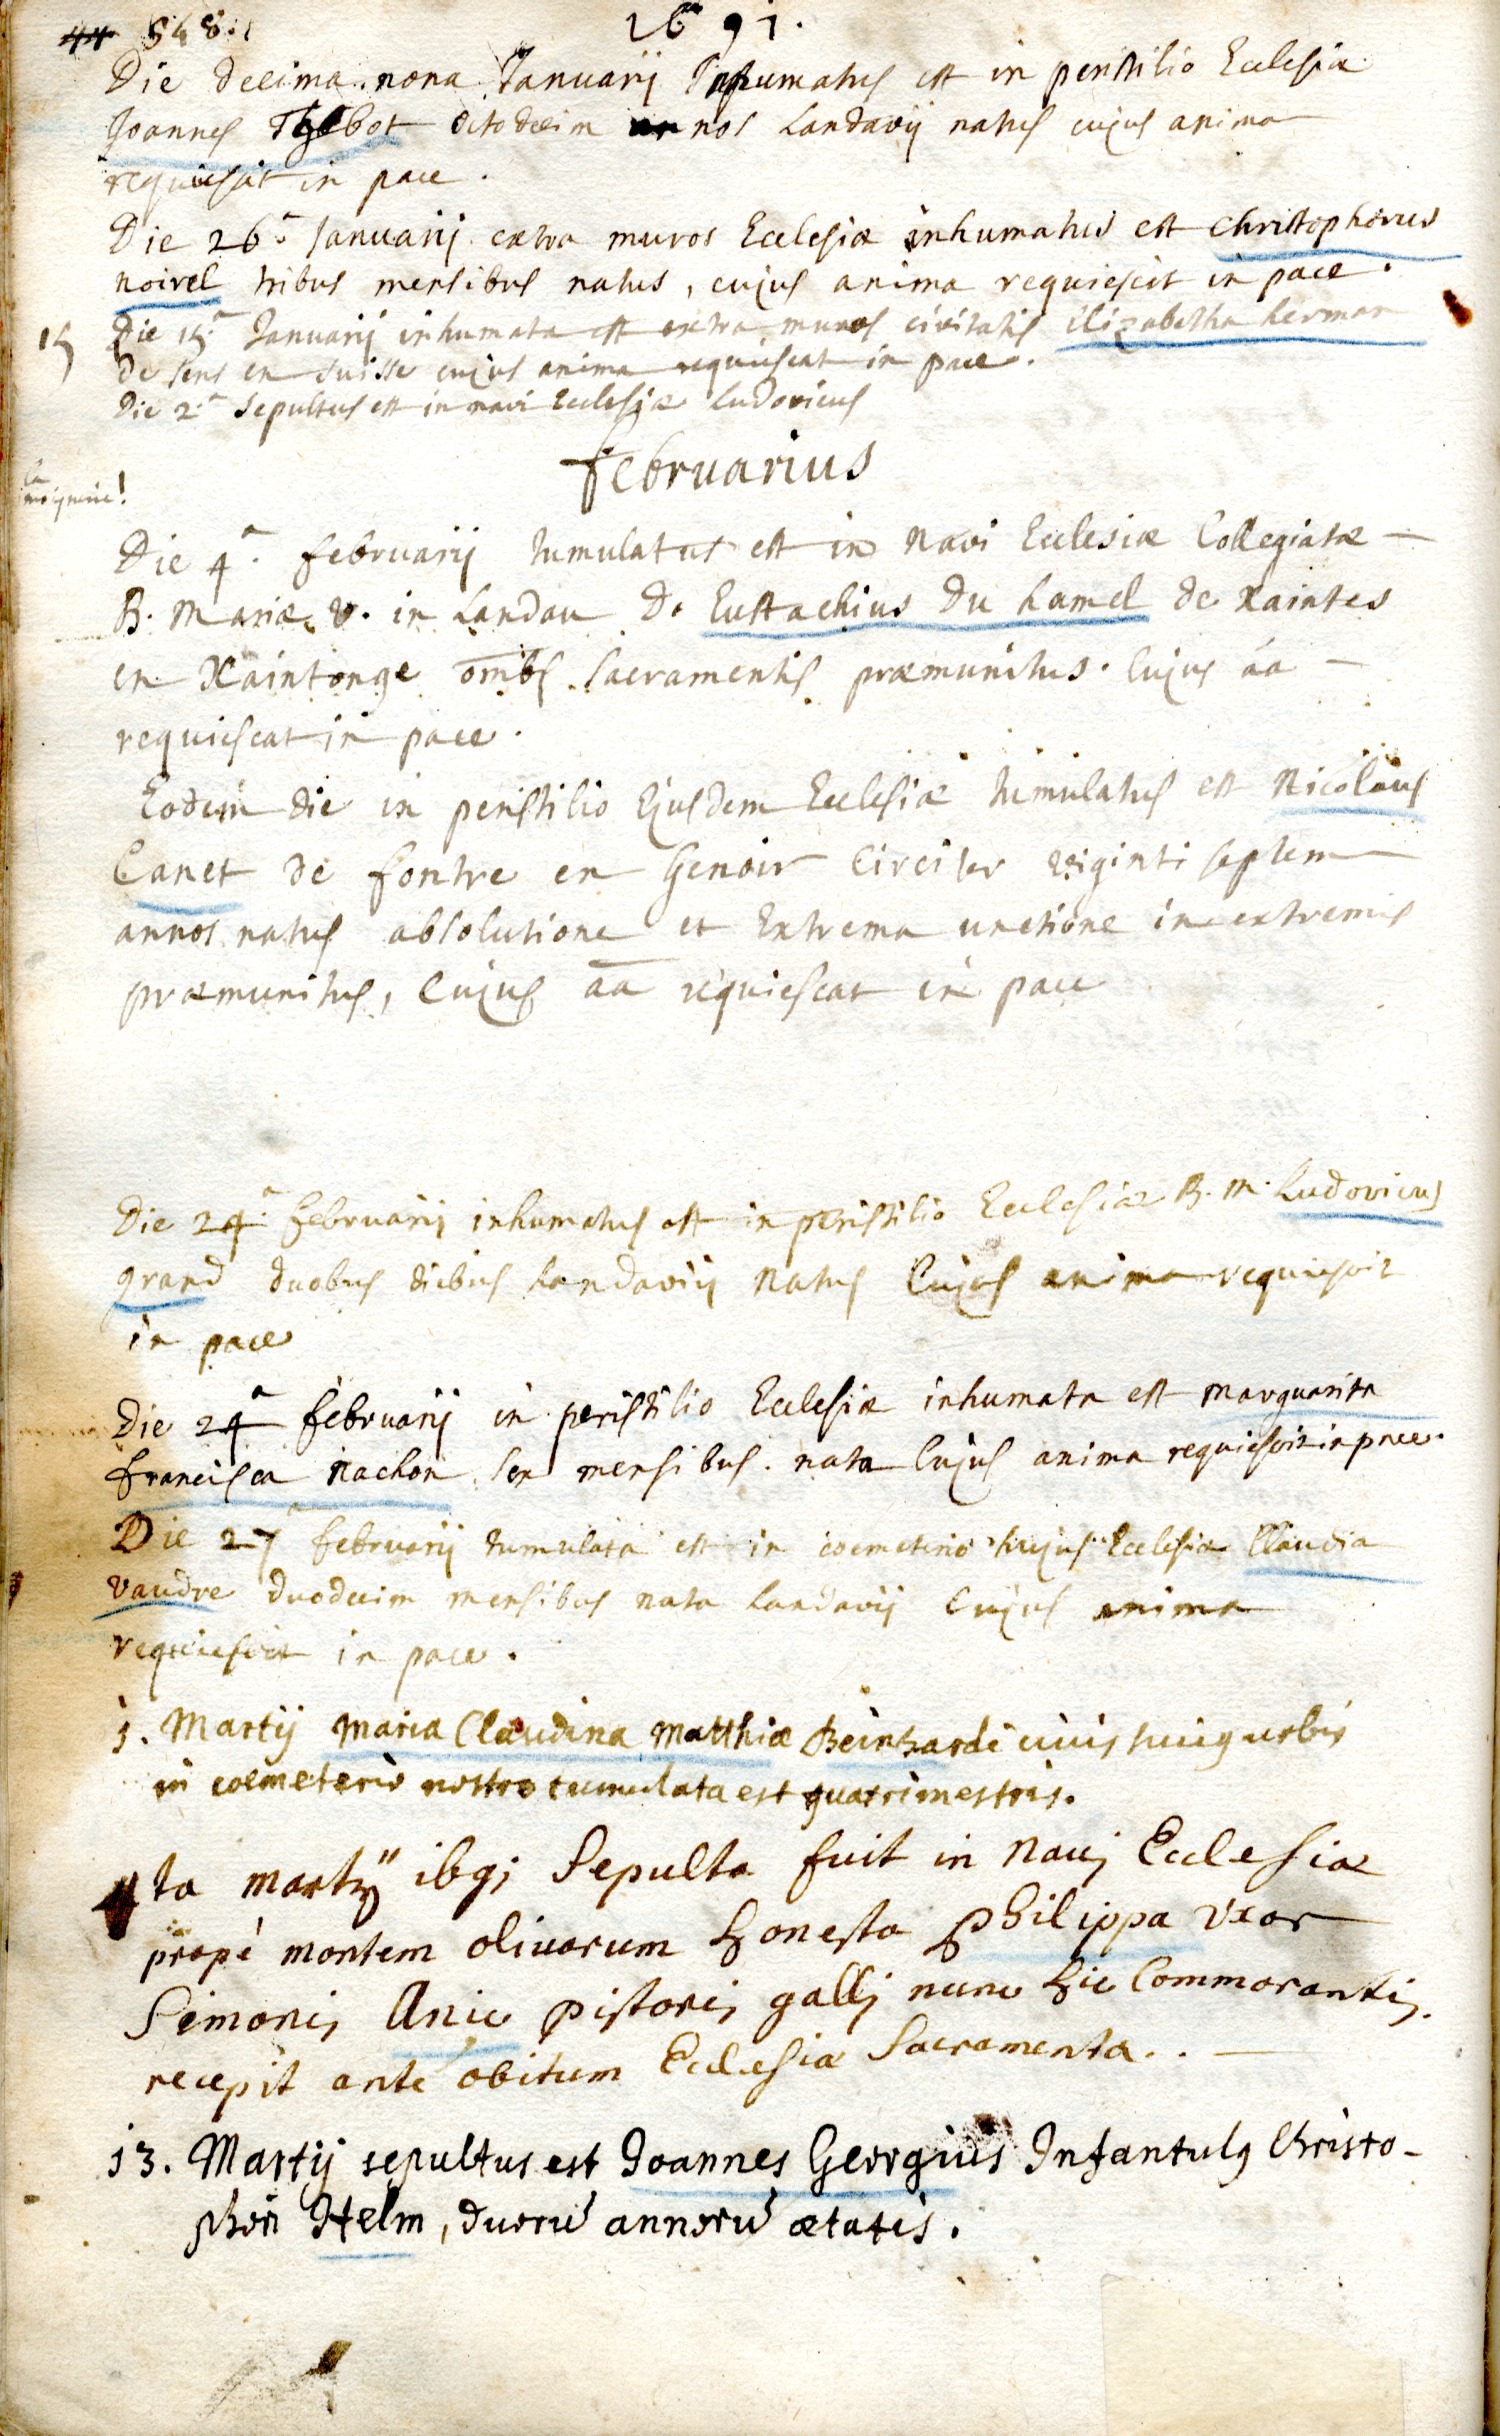 548.
1691.
Die decima nona Januarij Inhumatus est in peristilio Ecclesiæ
Joannes octodecim annos Landavij natus cujus anima
requiescat in pace.
Die 26.a Januarij extra muros Ecclesiæ inhumatus est Christophorus
noirel tribus mensibus natus, cujus anima requiescit in pace.
15 Die 15.a Januarij inhumata est extra muros civitatis Elizabetha herman
de sens en suisse cujus anima requiescat in pace.
Die 2.a sepultus est in navi Ecclesiæ Ludovicus
Februarius
Die 4.a februarij tumulatus est in Navi Ecclesiæ Collegiatæ
B. Mariæ V. in Landau D. Eustachius Du hamel de Xaintes
en Xaintonge omibs sacramentis præmunitus. Cujus aa
requiescat in pace.
Eodem die in peristilio Ejusdem Ecclesiæ tumulatus est Nicolaus
Canet de fontre en Genoir Circiter viginti septem
annos natus absolutione et Extrema unctione in extremis
præmunitus, Cujus aa requiescat in pace
Die 24.a februarij inhumatus est in peristilio Ecclesiæ B. M. Ludovicus
grand duobus diebus Landavij Natus Cujus anima requiescit
in pace
Die 24a februarij in peristilio Ecclesiæ inhumata est marguarita
francisca Nachon sex mensibus nata Cujus anima requiescit in pace.
Die 27a februarij tumulata est in coemeterio hujus Ecclesiæ Claudia
Vaudre duodecim mensibus nata Landavij Cujus anima
requiescit in pace.
1. Martij Maria Claudina Matthiæ Beinhardi civis huiq urbis
in coemeterio nostro tumulata est quatrimestris.
4ta martij ibq; Sepulta fuit in Navj Ecclesiæ
propè montem olivarum honesta Philippa Vxor
Simonis Anie pistoris gallj nunc hic Commorantis.
recepit antè obitum Ecclesiæ Sacramenta..
13. Martij sepultus est Joannes Georgius Infantulq Christo-
phori Helm, duorú annorú ætatis.